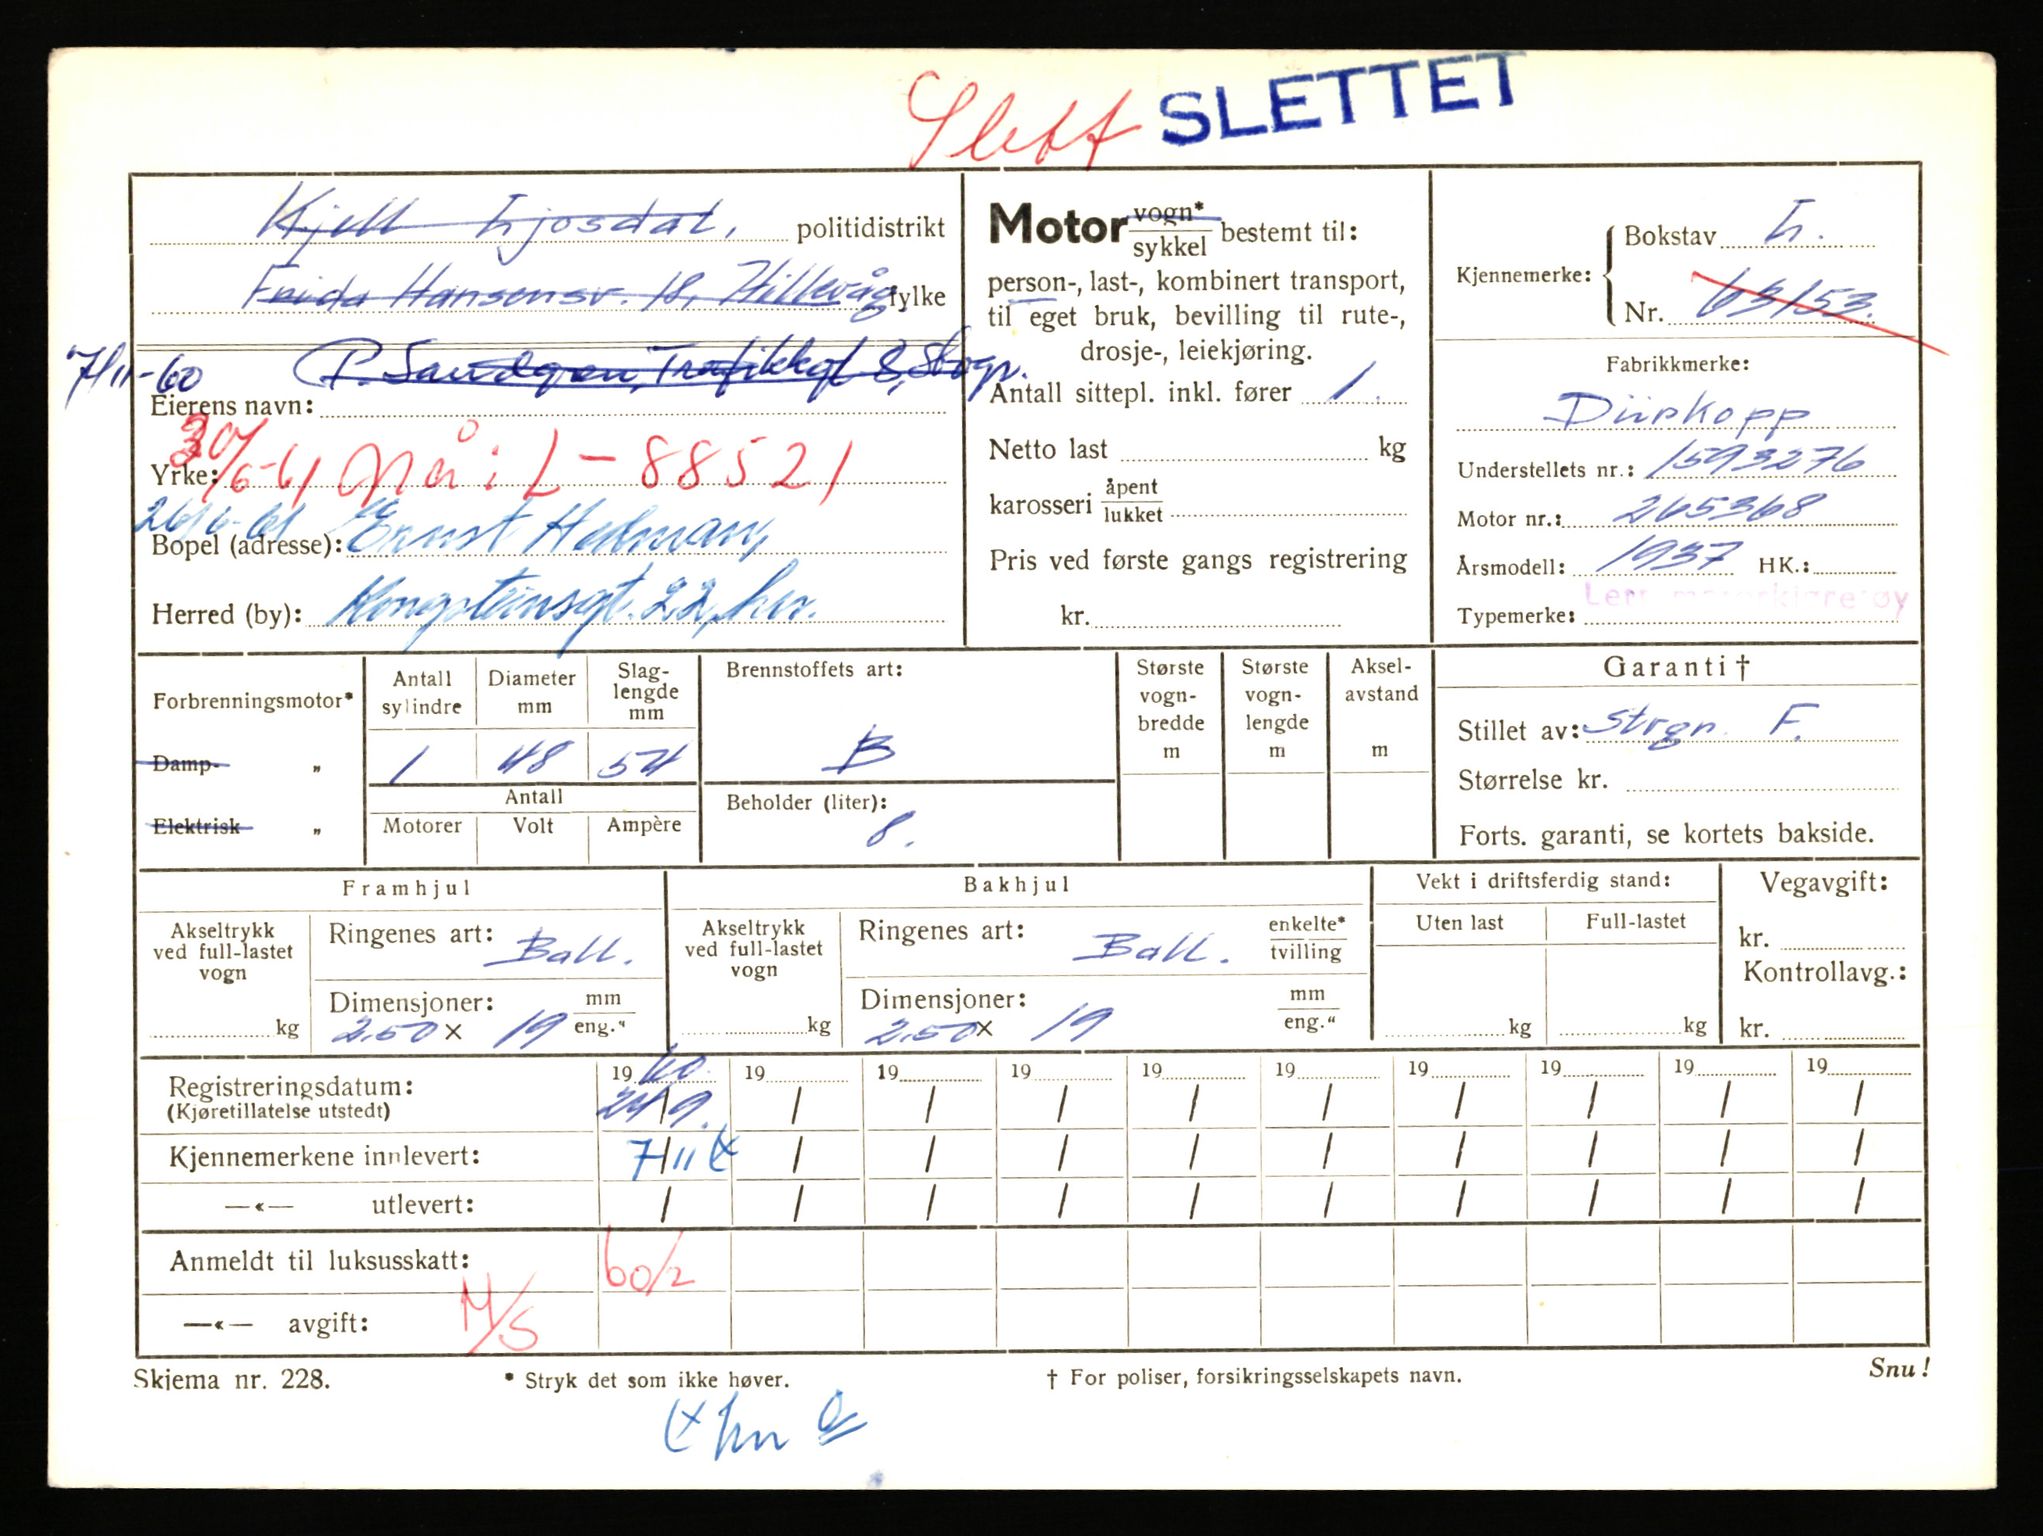 Slett SLETTET
Kjell Ljosdal, politidistrikt
Frida Hansensv. 18, Hillevåg fylke
7/11-60 P. Sandgren, Trafikkgt 8, Stvgr.
Eierens navn:
Yrke: 30/6-61 Nå i L-88521
26/6-61 Ernst Hedman,
Bopel (adresse):
Herred (by): Kongsteinsgt. 22, her.
Motor vogn* / sykkel bestemt til:
person-, last-, kombinert transport,
til eget bruk, bevilling til rute-,
drosje-, leiekjøring.
Antall sittepl. inkl. fører 1.
Netto last kg
karosseri åpent / lukket
Pris ved første gangs registrering
kr.
Kjennemerke: Bokstav L.
Nr. 63153.
Fabrikkmerke:
Dürkopp
Understellets nr.: 1593276
Motor nr.: 265368
Årsmodell: 1937 HK.:
Typemerke: Lett motorkjøretøy
Forbrenningsmotor*
Damp- „
Elektrisk „
Antall sylindre 1
Diameter mm 48
Slaglengde mm 54
Antall
Motorer Volt Ampère
Brennstoffets art:
B
Beholder (liter):
8.
Største vogn-bredde m
Største vogn-lengde m
Aksel-avstand m
Garanti †
Stillet av: Strgr. F.
Størrelse kr.
Forts. garanti, se kortets bakside.
Framhjul
Akseltrykk ved full-lastet vogn
kg
Ringenes art: Ball.
Dimensjoner: mm / eng.“
2.50 x 19
Bakhjul
Akseltrykk ved full-lastet vogn
kg
Ringenes art: Ball. enkelte* / tvilling
Dimensjoner: mm / eng.“
2.50 x 19
Vekt i driftsferdig stand:
Uten last Full-lastet
kg kg
Vegavgift:
kr.
Kontrollavg.:
kr.
Registreringsdatum: 19 60 19 19 19 19 19 19 19 19 19
(Kjøretillatelse utstedt) 24/9. / / / / / / / / /
Kjennemerkene innlevert: 7/11 / / / / / / / / /
—«— utlevert: / / / / / / / / / /
Anmeldt til luksusskatt: 60/2
—«— avgift: M/S
Skjema nr. 228. * Stryk det som ikke høver. † For poliser, forsikringsselskapets navn. Snu!